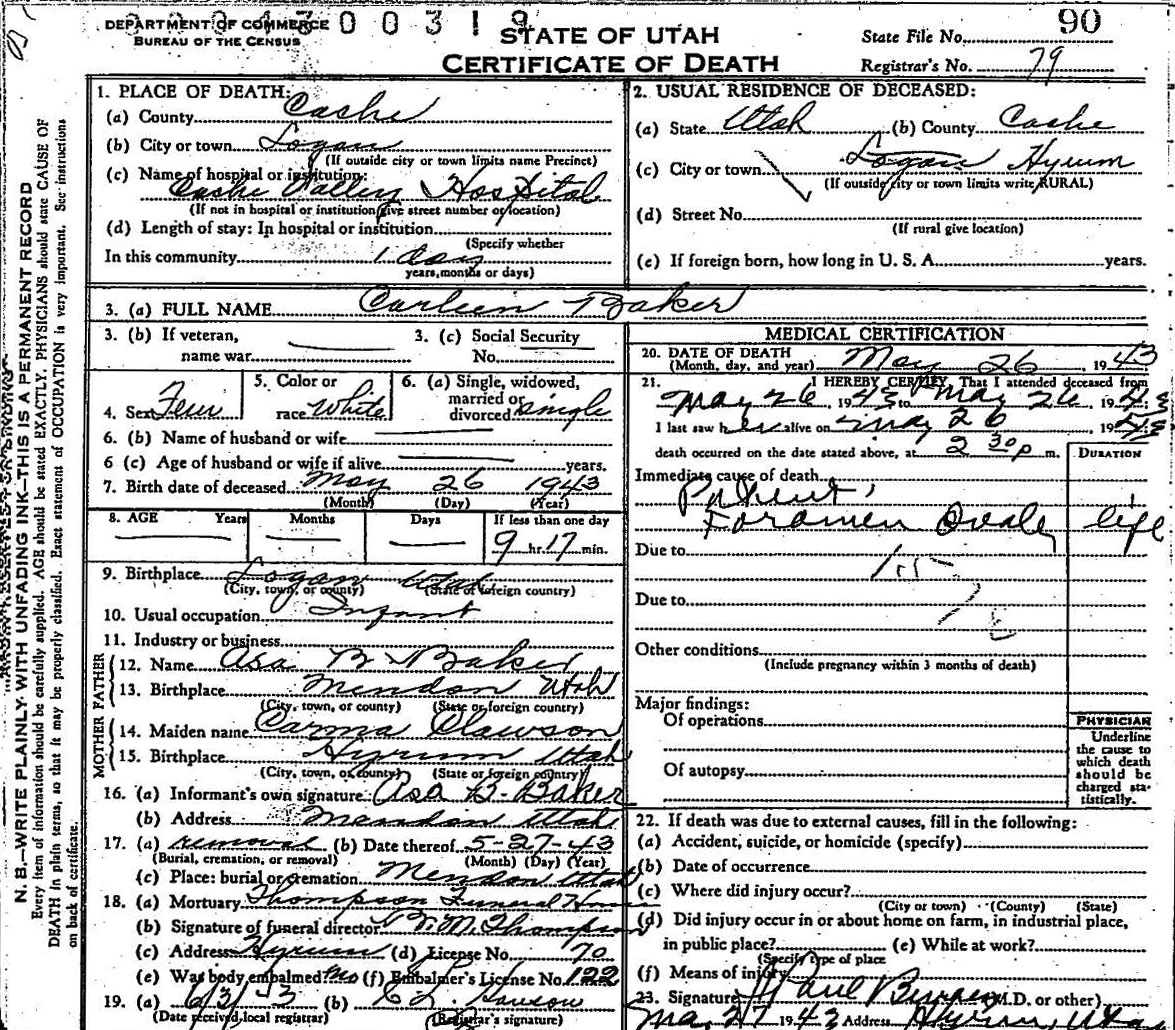 DEPARTMENT OF COMMERCE
BUREAU OF THE CENSUS
0 0 3 1 9
STATE OF UTAH
CERTIFICATE OF DEATH
State File No. 90
Registrar's No. 79
N. B.—WRITE PLAINLY WITH UNFADING INK—THIS IS A PERMANENT RECORD
Every item of information should be carefully supplied. AGE should be stated EXACTLY. PHYSICIANS should state CAUSE OF
DEATH in plain terms, so that it may be properly classified. Exact statement of OCCUPATION is very important. See instructions
on back of certificate.
1. PLACE OF DEATH:
(a) County Cache
(b) City or town Logan
(If outside city or town limits name Precinct)
(c) Name of hospital or institution:
Cache Valley Hospital
(If not in hospital or institution give street number or location)
(d) Length of stay: In hospital or institution
(Specify whether
In this community 1 day
years, months or days)
2. USUAL RESIDENCE OF DECEASED:
(a) State Utah (b) County Cache
(c) City or town Logan Hyrum
(If outside city or town limits write RURAL)
(d) Street No.
(If rural give location)
(e) If foreign born, how long in U. S. A. years.
3. (a) FULL NAME Baker
3. (b) If veteran,
name war
3. (c) Social Security
No.
4. Sex Fem
5. Color or
race White
6. (a) Single, widowed,
married or
divorced single
6. (b) Name of husband or wife
6 (c) Age of husband or wife if alive years.
7. Birth date of deceased May 26 1943
(Month) (Day) (Year)
8. AGE Years Months Days If less than one day
9 hr. 17 min.
9. Birthplace Logan Utah
(City, town, or county) (State of foreign country)
10. Usual occupation Infant
11. Industry or business
FATHER
12. Name Asa B Baker
13. Birthplace Mendon Utah
(City, town, or county) (State or foreign country)
MOTHER
14. Maiden name Carma Clawson
15. Birthplace Hyrum Utah
(City, town, or county) (State or foreign country)
16. (a) Informant's own signature Asa B. Baker
(b) Address Mendon Utah
17. (a) removal (b) Date thereof 5-27-43
(Burial, cremation, or removal) (Month) (Day) (Year)
(c) Place: burial or cremation Mendon Utah
18. (a) Mortuary Thompson Funeral Home
(b) Signature of funeral director W. M. Thompson
(c) Address Hyrum (d) License No. 70
(e) Was body embalmed? no (f) Embalmer's License No. 122
19. (a) (b)
(Date received local registrar) (Registrar's signature)
MEDICAL CERTIFICATION
20. DATE OF DEATH
(Month, day, and year) May 26 1943
21. I HEREBY CERTIFY, That I attended deceased from
May 26, 1943 to May 26 1943
I last saw her alive on May 26, 1943
death occurred on the date stated above, at 2 30 p m.
DURATION
Immediate cause of death
Patent
Foramen Ovale life
Due to
Due to
Other conditions
(Include pregnancy within 3 months of death)
Major findings:
Of operations
Of autopsy
PHYSICIAN
Underline
the cause to
which death
should be
charged sta-
tistically.
22. If death was due to external causes, fill in the following:
(a) Accident, suicide, or homicide (specify)
(b) Date of occurrence
(c) Where did injury occur?
(City or town) (County) (State)
(d) Did injury occur in or about home on farm, in industrial place,
in public place? (e) While at work?
(Specify type of place
(f) Means of injury
23. Signature Paul M.D. or other)
27 1943 Address Hyrum, Utah